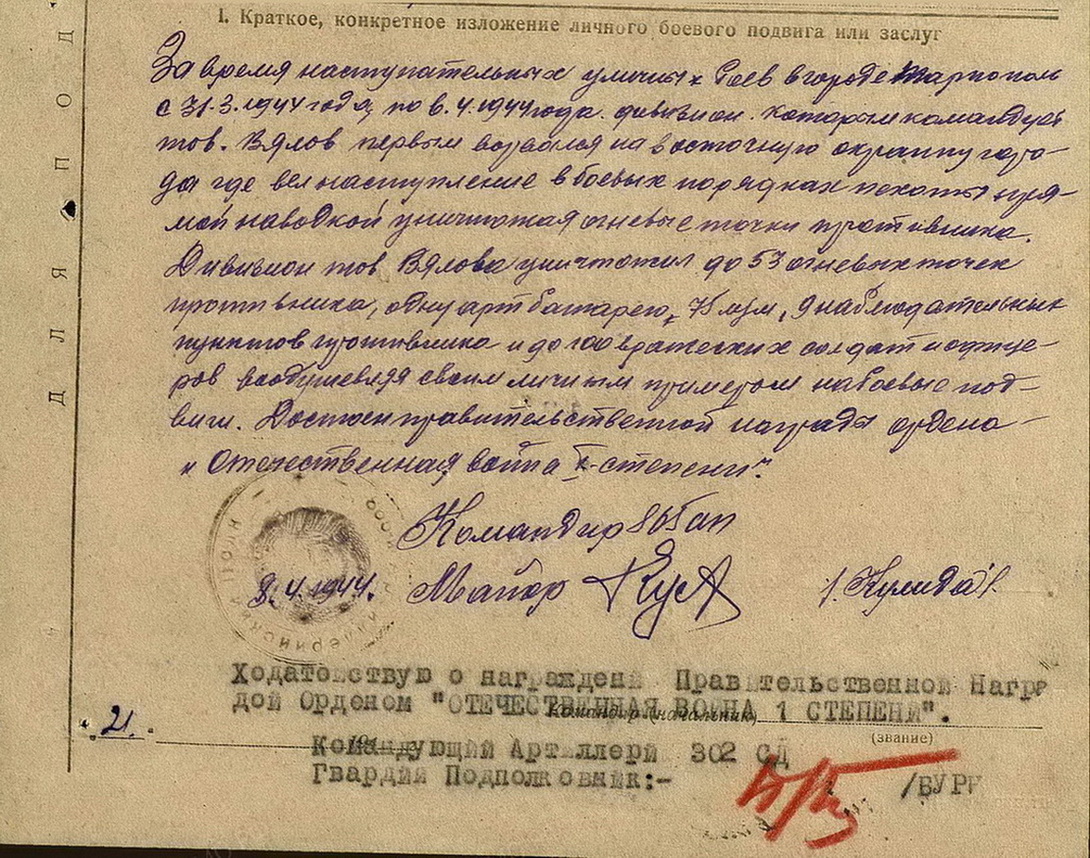 I. Краткое, конкретное изложение личного боевого подвига или заслуг
За время наступательных уличных боев в городе Тарнополь
с 31.3.1944 года, по 6.4.1944 года. дивизион. которым командует
тов. Вялов первым ворвался на восточную окраину горо-
да где вел наступление в боевых порядках пехоты пря-
мой наводкой уничтожая огневые точки противника.
Дивизион тов Вялова уничтожил до 53 огневых точек
противника, одну арт батарею, 75 м/м, 9 наблюдательных
пунктов противника и до 100 вражеских солдат и офице-
ров воодушевляя своим личным примером на боевые под-
виги. Достоин правительственной награды ордена
"Отечественная война I-степени".
Командир 865 ап
8.4.1944. Майор /Кулида/
Ходатовствую о награждени Правительственной Награ
дой Орденом "ОТЕЧЕСТВЕННАЯ ВОЙНА 1 СТЕПЕНИ".
Командир (начальник)
21.
(звание)
Командующий Артиллери 302 СД
Гвардии Подполковник:-
/БУРК
ДЛЯ ПОД